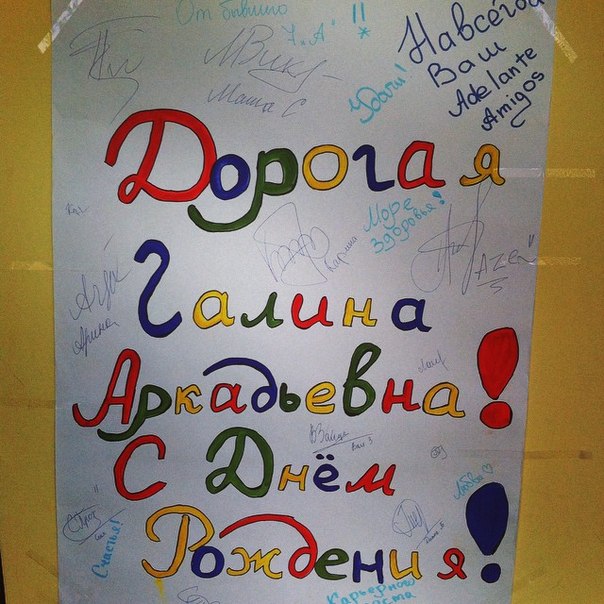 От бывшего
7 „А" !! *
Маша С
Удачи!
Навсегда
Ваш
Adelante
Amigos
Дорогая
Море
здоровья!
Карина
Галина
Арина
Аркадьевна!
С Днём
Любви ♡
Счастья!
Рождения!
Карьерного
роста